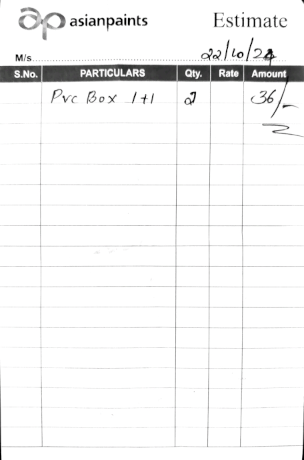 ap asianpaints Estimate
M/s 22/10/24
S.No. PARTICULARS Qty. Rate Amount
Pvc Box 1+1 2 36/-